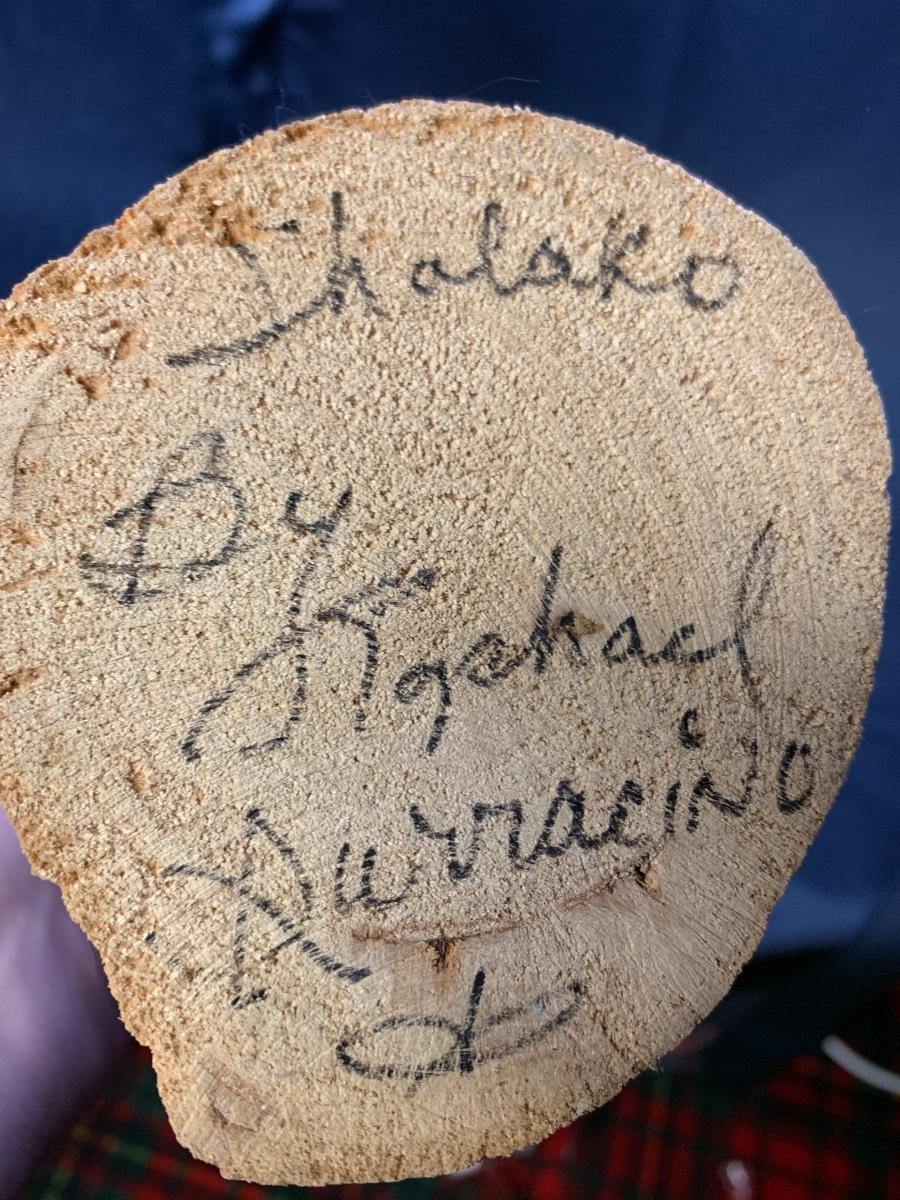 Shalako
By
Michael
Durracino